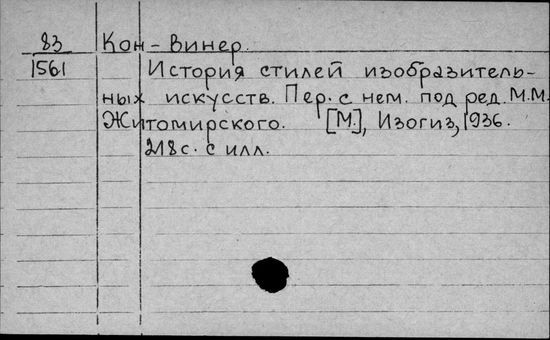 83 Кон-Винер.
1561 История стилей изобразитель-
ных искусств. Пер. с нем. под ред. М.М.
Житомирского. [М.], Изогиз, 1936.
218 с. с илл.